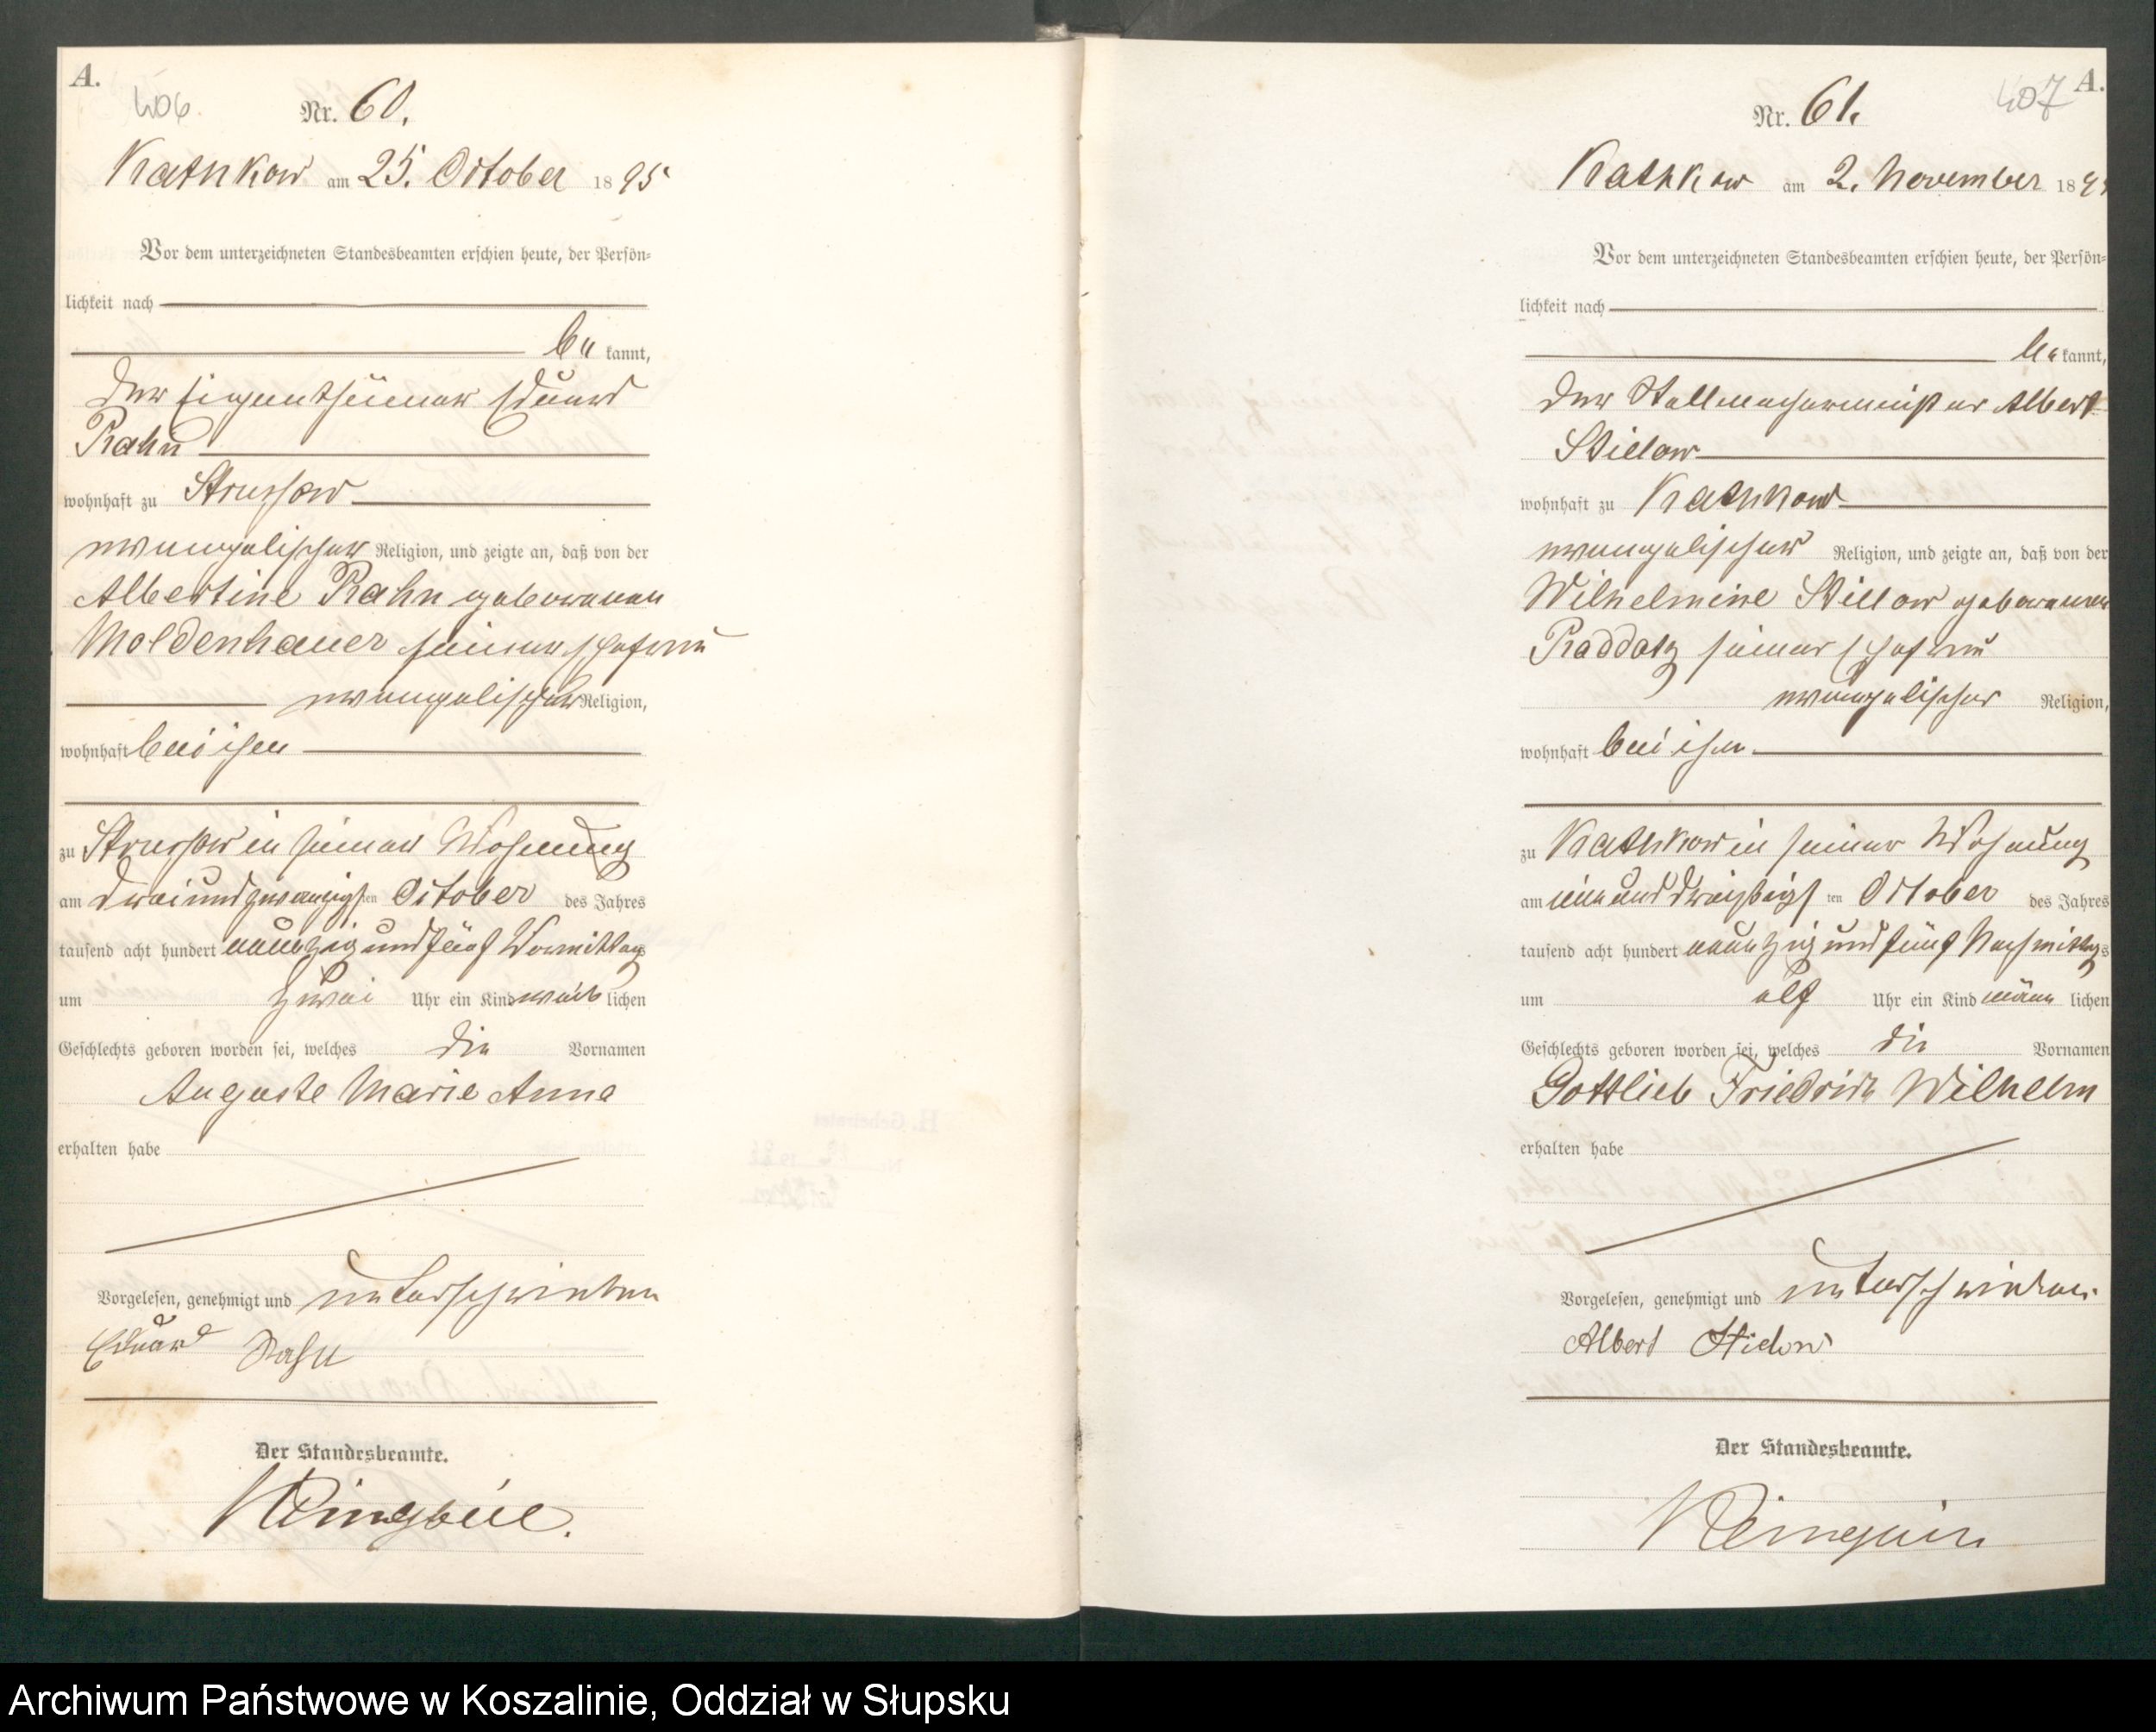 A.
406.
Nr. 60.
Kathkow am 25. October 1895
Vor dem unterzeichneten Standesbeamten erschien heute, der Persön-
lichkeit nach
be kannt,
der Eigenthümer Eduard
Rahn
wohnhaft zu Strussow
evangelischer Religion, und zeigte an, daß von der
Albertine Rahn geborenen
Moldenhauer seiner Ehefrau
evangelischer Religion,
wohnhaft bei ihm
zu Strussow in seiner Wohnung
am dreiundzwanzigsten October des Jahres
tausend acht hundert neunzig und fünf Vormittags
um zwei Uhr ein Kind weiblichen
Geschlechts geboren worden sei, welches die Vornamen
Auguste Marie Anna
erhalten habe
Vorgelesen, genehmigt und unterschrieben
Eduard Rahn
Der Standesbeamte.
A.
407
Nr. 61.
Kathkow am 2. November 189
Vor dem unterzeichneten Standesbeamten erschien heute, der Persön-
lichkeit nach
be kannt,
der Stellmachermeister Albert
Stielow
wohnhaft zu Kathkow
evangelischer Religion, und zeigte an, daß von der
Wilhelmine Stielow geborenen
Raddatz seiner Ehefrau
evangelischer Religion,
wohnhaft bei ihm
zu Kathkow in seiner Wohnung
am ein und dreißigsten October des Jahres
tausend acht hundert neunzig und fünf Nachmittags
um elf Uhr ein Kind männlichen
Geschlechts geboren worden sei, welches die Vornamen
Gottlieb Friedrich Wilhelm
erhalten habe
Vorgelesen, genehmigt und unterschrieben
Albert Stielow
Der Standesbeamte.
Archiwum Państwowe w Koszalinie, Oddział w Słupsku